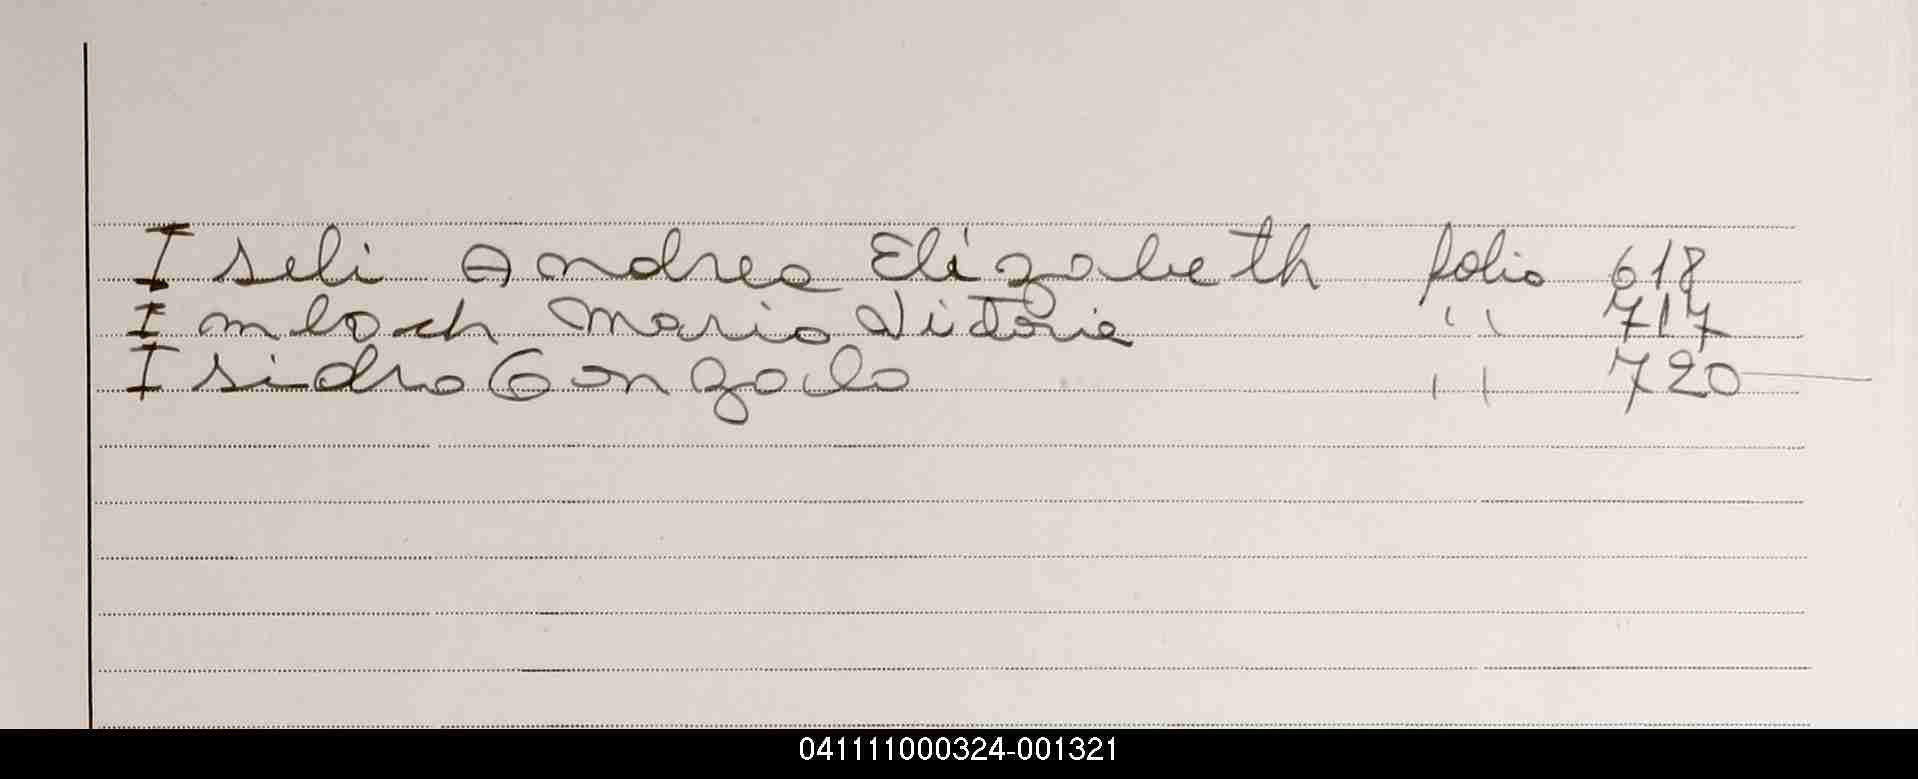 Iseli Andrea Elizabeth folio 618
Imloch Maria Vitoria '' 717
Isidro Gonzalo '' 720
041111000324-001321